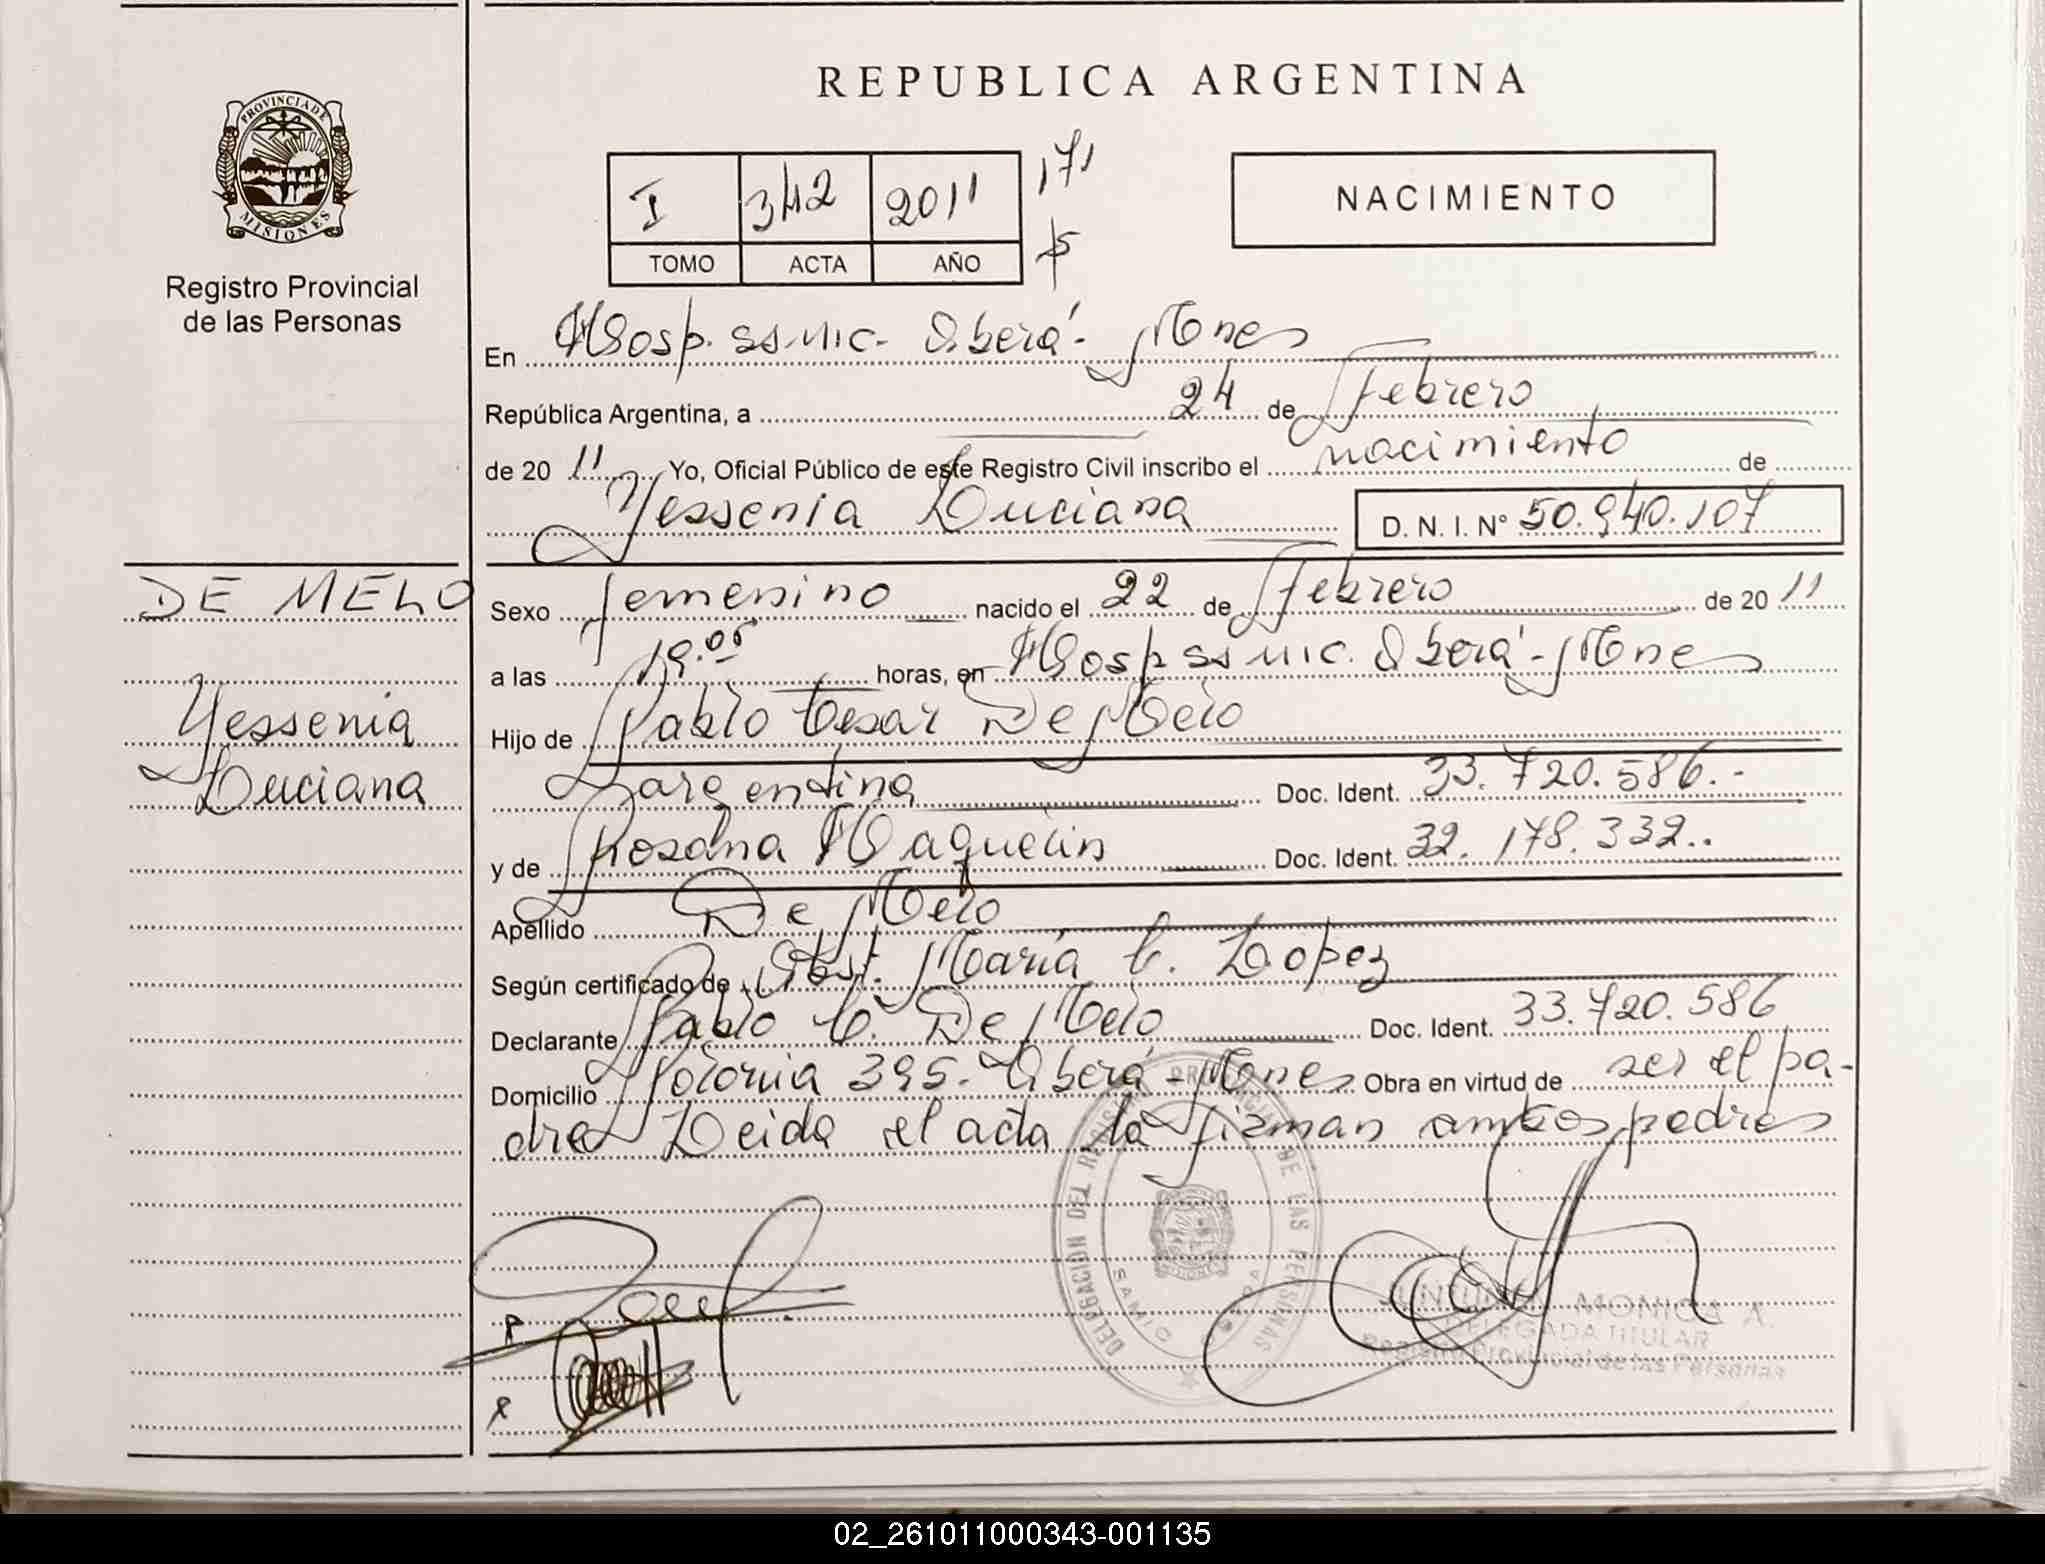 REPUBLICA ARGENTINA
PROVINCIA DE MISIONES
Registro Provincial
de las Personas
I 342 2011 171
TOMO ACTA AÑO
NACIMIENTO
En Hosp. ss Mic. Oberá - Mnes
República Argentina, a 24 de Febrero
de 2011 Yo, Oficial Público de este Registro Civil inscribo el nacimiento de
Yessenia Luciana D. N. I. N° 50.940.107
DE MELO
Yessenia
Luciana
Sexo femenino nacido el 22 de Febrero de 2011
a las 19.05 horas, en Hosp ss Mic. Oberá - Mnes
Hijo de Pablo Cesar De Melo
argentina Doc. Ident. 33.720.586.-
y de Rosana Maquelin Doc. Ident. 32.178.332..
Apellido De Melo
Según certificado de Obst. María C. Lopez
Declarante Pablo C. De Melo Doc. Ident. 33.720.586
Domicilio Polonia 395. Oberá - Mnes Obra en virtud de ser el pa-
dre Leida el acta la firman ambos padres
DELEGACION DEL REGISTRO PROVINCIAL DE LAS PERSONAS
MONICA A.
DELEGADA TITULAR
Registro Provincial de las Personas
02_261011000343-001135